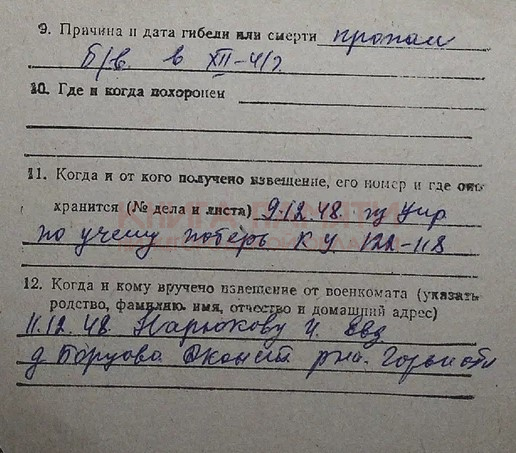 9. Причина и дата гибели или смерти пропал
б/в. в XII-41г
10. Где и когда похоронен
11. Когда и от кого получено извещение, его номер и где оно
хранится (№ дела и листа) 9.12.48. гу Упр
по учету потерь К У 122-118
12. Когда и кому вручено извещение от военкомата (указать
родство, фамилию, имя, отчество и домашний адрес)
11.12.48 Нарюкову И. Евд
д Борцово рна. Горьк обл